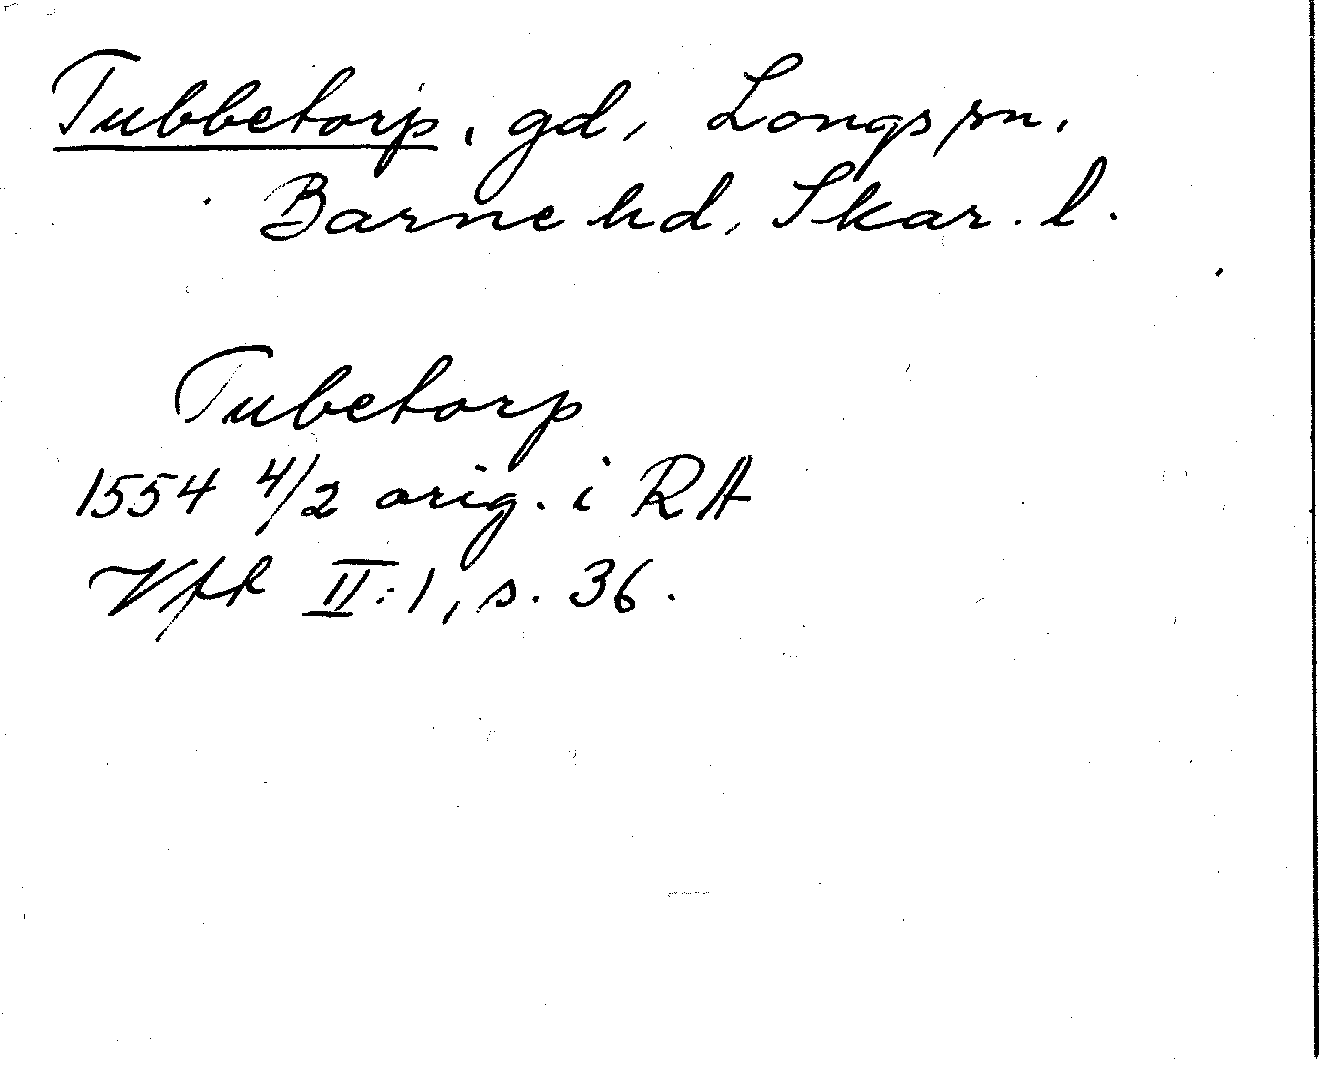 Tubbetorp, gd, Längs sn,
Barne hd, Skar. l.
Tubetorp
1554 4/2 orig. i RA
VFR II:1, s. 36.